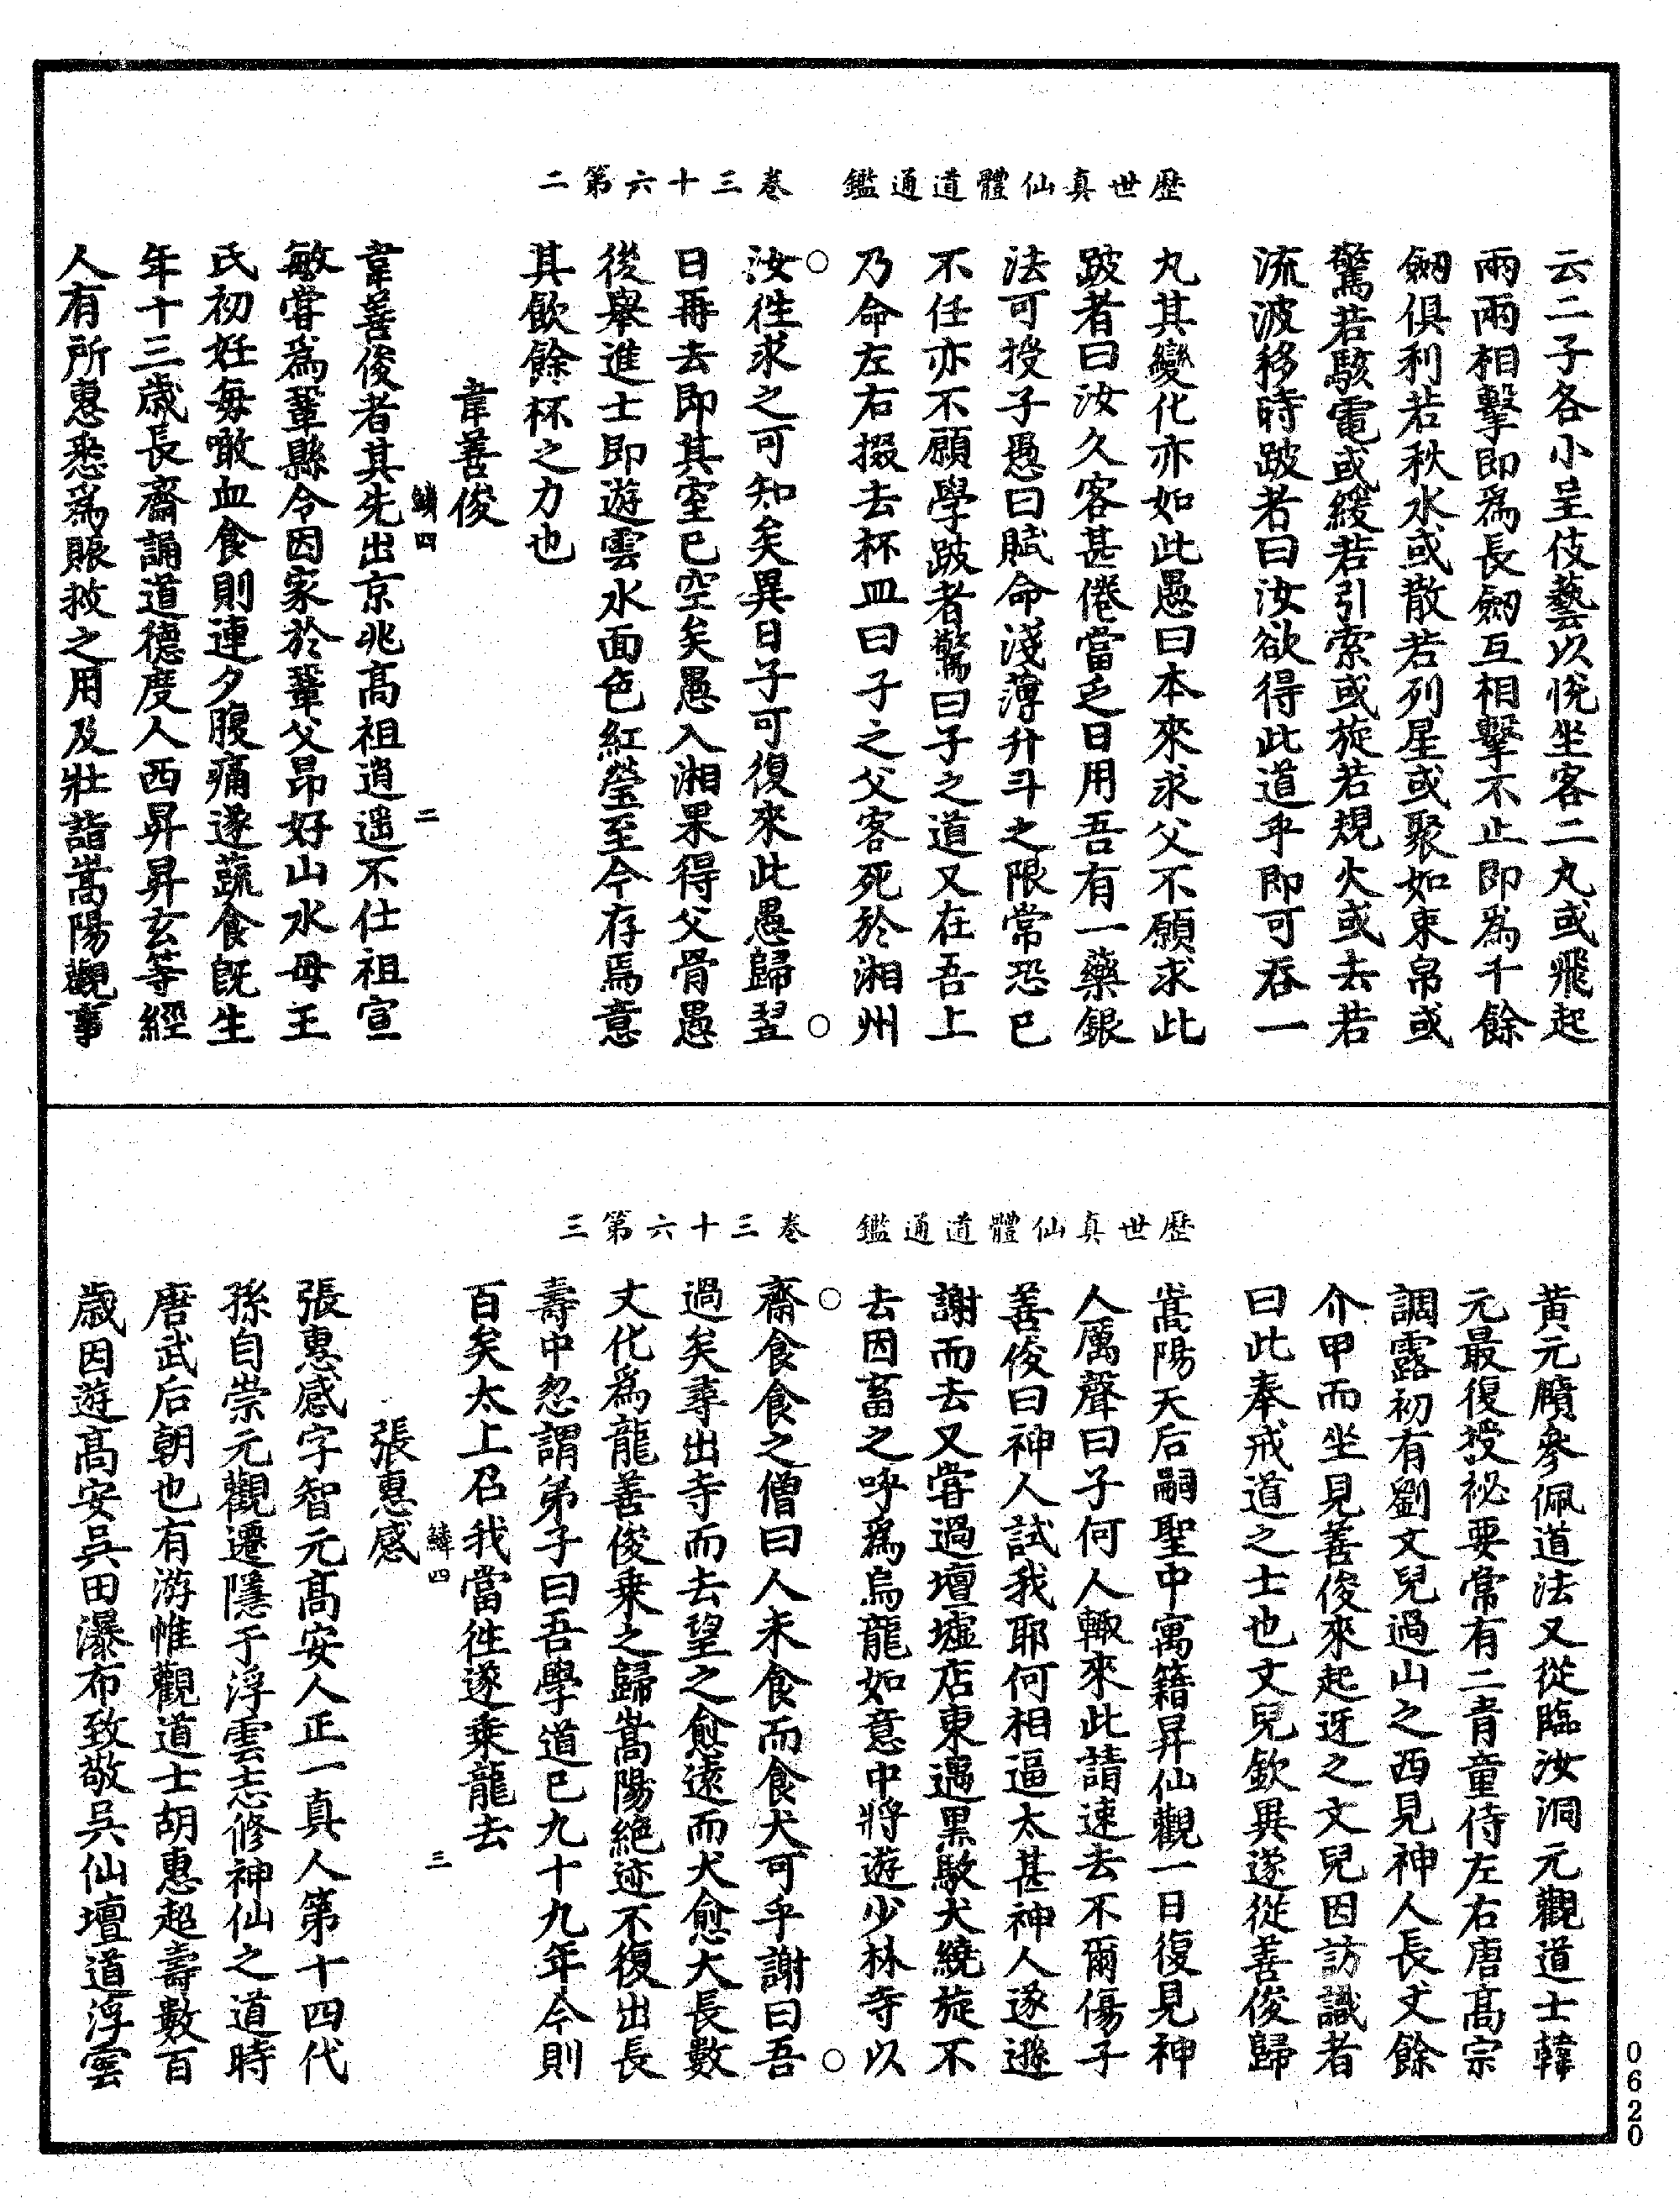 歷世真仙體道通鑑　卷三十六第二
云二子各小呈伎藝以悅坐客二丸或飛起
兩兩相擊即為長劒互相擊不止即為千餘
劒俱利若秋水或散若列星或聚如束帛或
驚若駭電或緩若引索或旋若規火或去若
流波移時跛者曰汝欲得此道乎即可吞一
丸其變化亦如此愚曰本來求父不願求此
跛者曰汝久客甚倦當乏日用吾有一藥銀
法可授子愚曰賦命淺薄升斗之限常恐已
不任亦不願學跛者驚曰子之道又在吾上
乃命左右掇去杯皿曰子之父客死於湘州
汝往求之可知矣異日子可復來此愚歸翌
日再去即其室已空矣愚入湘果得父骨愚
後舉進士即遊雲水面色紅瑩至今存焉意
其飲餘杯之力也
韋善俊
鱗四　二
韋善俊者其先出京兆高祖逍遥不仕祖宣
敏嘗為鞏縣令因家於鞏父昂好山水母王
氏初妊每噉血食則連夕腹痛遂蔬食旣生
年十三歲長齋誦道德度人西昇昇玄等經
人有所惠悉為賑救之用及壯詣嵩陽觀事
歷世真仙體道通鑑　卷三十六第三
黃元賾參佩道法又從臨汝洞元觀道士韓
元最復授祕要常有二青童侍左右唐高宗
調露初有劉文兒過山之西見神人長丈餘
介甲而坐見善俊來起迓之文兒因訪識者
曰此奉戒道之士也文兒欽異遂從善俊歸
嵩陽天后嗣聖中寓籍昇仙觀一日復見神
人厲聲曰子何人輙來此請速去不爾傷子
善俊曰神人試我耶何相逼太甚神人遂遜
謝而去又嘗過壇墟店東遇黑駮犬繞旋不
去因畜之呼為烏龍如意中將遊少林寺以
齋食食之僧曰人未食而食犬可乎謝曰吾
過矣尋出寺而去望之愈遠而犬愈大長數
丈化為龍善俊乘之歸嵩陽絕迹不復出長
壽中忽謂弟子曰吾學道已九十九年今則
百矣太上召我當往遂乘龍去
張惠感
鱗四　三
張惠感字智元高安人正一真人第十四代
孫自崇元觀遷隱于浮雲志修神仙之道時
唐武后朝也有游帷觀道士胡惠超壽數百
歲因遊高安吳田瀑布致敬吳仙壇道浮雲
0620